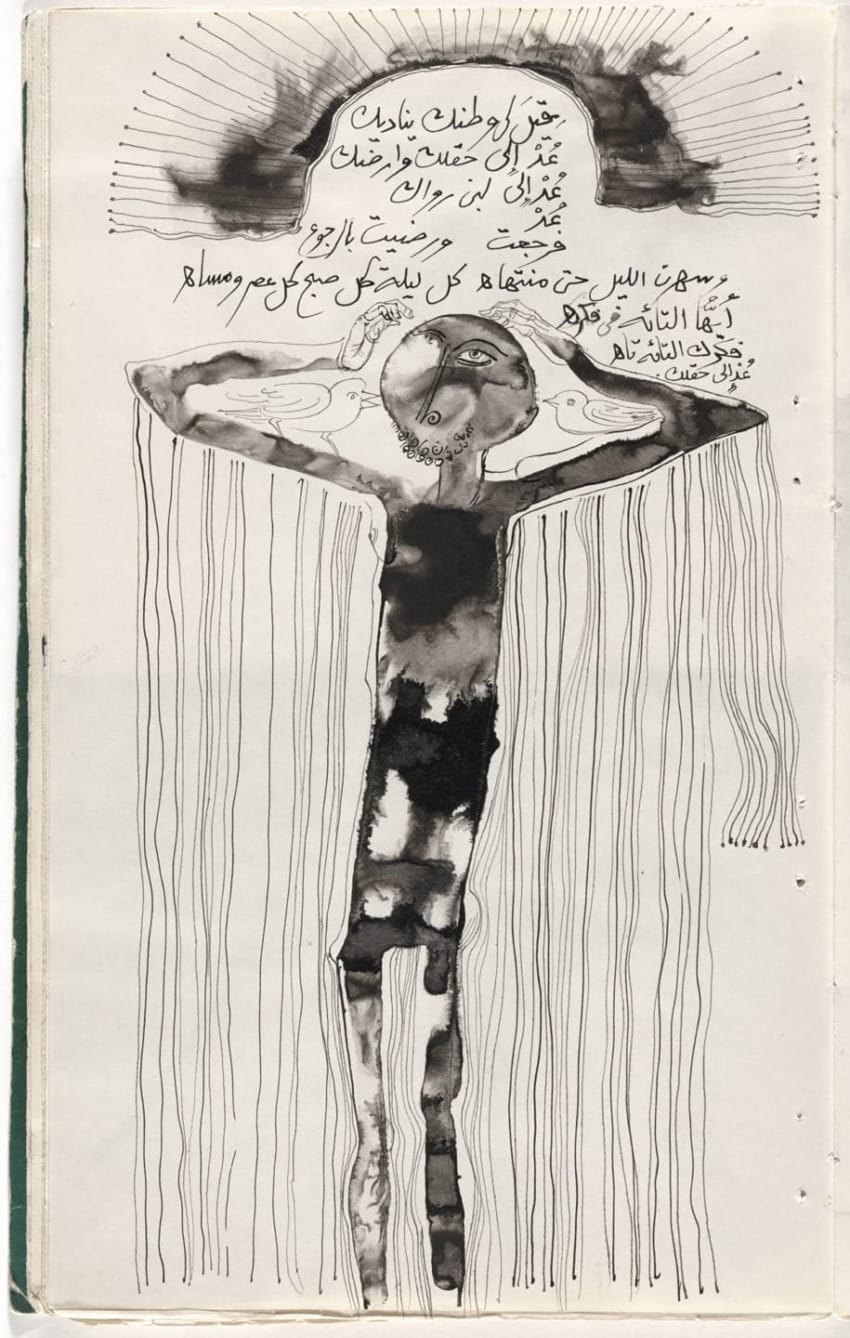 يقيل لي وطنك يناديك
عُدْ إلى حقلك وارضك
عُدْ إلى لبن رواك
عُدْ
فرجعت ورضيت بالرجوع
وسهرت الليل حتى منتهاه كل ليلة كل صبح كل عصر ومساه
أيُّها التائه في فكره
فكرك التائه تاه
عُد إلى حقلك